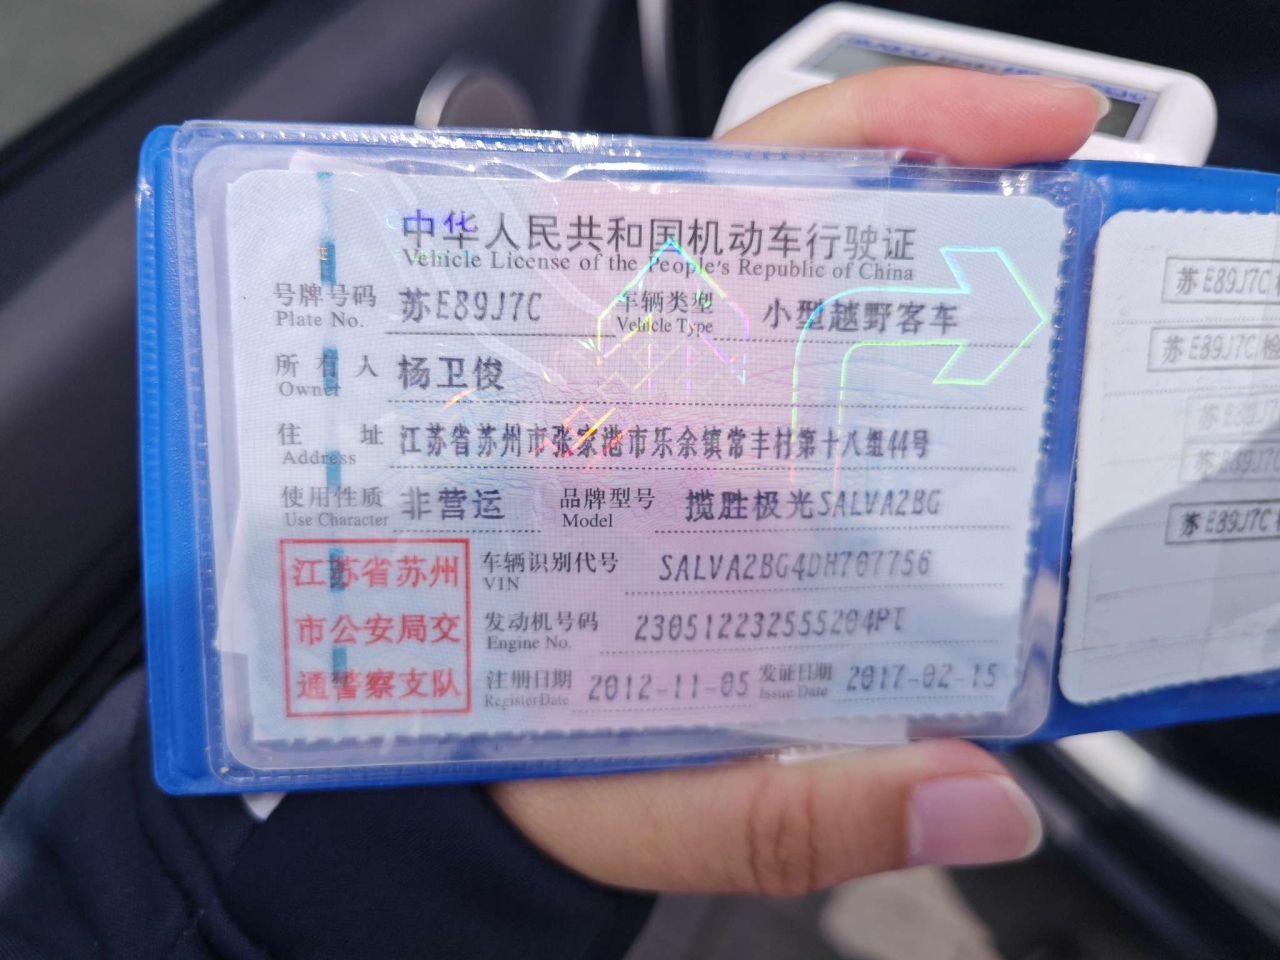 中华人民共和国机动车行驶证
Vehicle License of the People's Republic of China
号牌号码 苏E89J7C 车辆类型 小型越野客车
Plate No. Vehicle Type
所有人 杨卫俊
Owner
住址 江苏省苏州市张家港市乐余镇常丰村第十八组44号
Address
使用性质 非营运 品牌型号 揽胜极光SALVA2BG
Use Character Model
江苏省苏州
市公安局交
通警察支队
车辆识别代号 SALVA2BG4DH707756
VIN
发动机号码 230512232555204PT
Engine No.
注册日期 2012-11-05 发证日期 2017-02-15
Register Date Issue Date
苏E89J7C
苏E89J7C 检
苏E89J
苏E89J7C
苏E89J7C